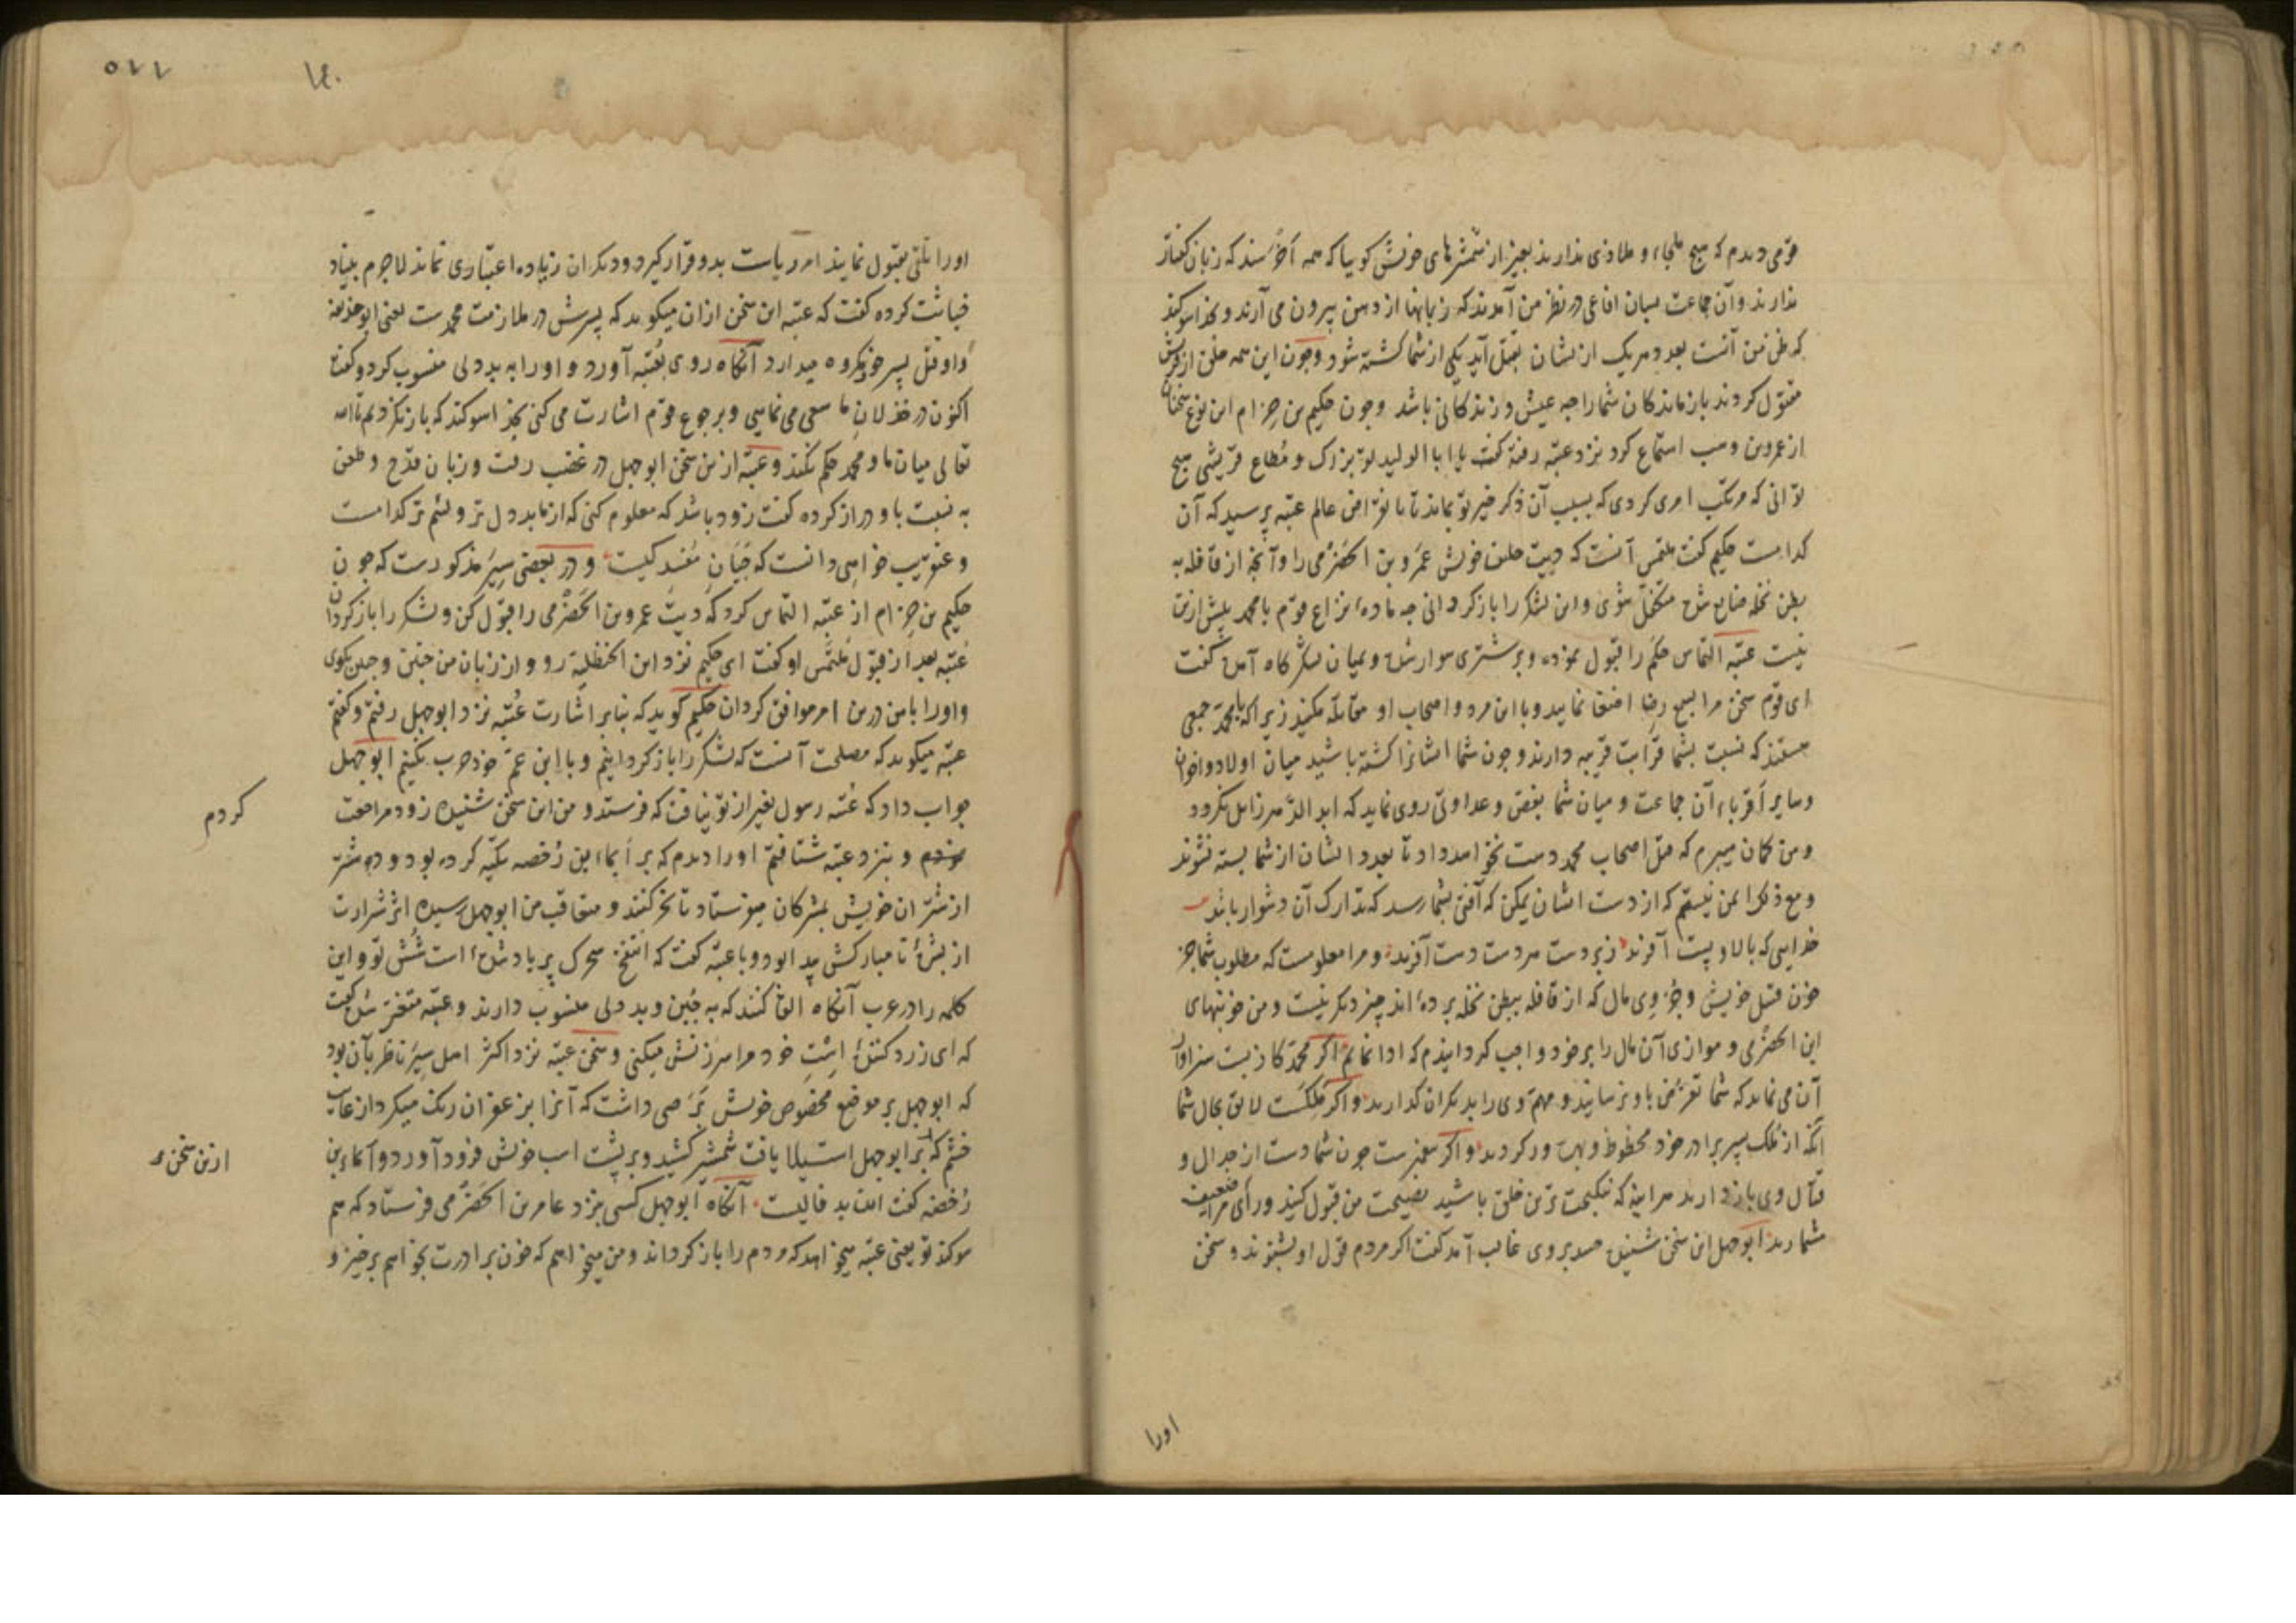 قومی دیدم که هیچ ملجاء و ملاذی ندارند بغیر از شمشرهای خویش کوییا که همه اخرسند که زبان کفتار
ندارند و آن جماعت بسان افاعی در نظر من آمدند که زبانها از دهن بیرون می آرند و بخدا سوکند
که ظن من آنست بعد دهریک از یشان بقتل آید یکی از شما کشته شود و چون این همه خلق از قریش
مقتول کردند بازماندکان شما را چه عیش و زندکانی باشد و چون حکیم بن حزام این نوع سخنان
از عمروبن وهب استماع کرد نزد عتبه رفته کفت یا ابا الولید تو بزرک و مطاع قریشی هیچ
توانی که مرتکب امری کردی که بسبب آن ذکر خیر تو بماند تا بانقراض عالم عتبه پرسید که آن
کدامست حکیم کفت ملتمس آنست که دیت حلیف خویش عمرو بن الحضرمی را و آنچه از قافله به
بطن نخله ضایع شده متکفل شوی و این لشکر را بازکردانی چه ماده نزاع قوم با محمد بیش ازین
نیست عتبه التماس حکم را قبول نموده و بر شتری سوار شده و بمیان لشکرکاه آمده کفت
ای قوم سخن مرا بسمع رضا اصغا نمایید و با این مرد و اصحاب او مقاتله مکنید زیرا که با محمد جمعی
هستند که نسبت بشما قرابت قریبه دارند و چون شما ایشانرا کشته باشید میان اولاد و اخوان
و سایر اقرباء آن جماعت و میان شما بغض و عداوتی روی نماید که ابد الدهر زایل نکردد
و من کمان میبرم که قتل اصحاب محمد دست نخواهد داد تا بعدد ایشان از شما بسته نشوند
و مع ذلک ایمن نیستم که از دست ایشان یمکن که آفتی بشما رسد که تدارک آن دشوار باشد
خدایی که بالا و پست آفرید زبر دست هر دست دست آفرید و مرا معلومست که مطلوب شما جز
خون قتل خویش و جزوی مال که از قافله ببطن نخله برده اند چیز دیکر نیست و من خونبهای
ابن الحضرمی و موازی آن مال را بر خود واجب کردانیدم که ادا نمایم اکر محمد کاذبست سزاوار
آن می نماید که شما تعرض باو نرسانید و مهم وی را بدیکران کذارید و اکر ملکست لایق بحال شما
آنکه از ملک پسر برادر خود محظوظ و بهره ور کردید و اکر پیغمبرست چون شما دست از جدال و
قتال وی باز دارید هراینه که نیکبخت ترین خلق باشید نصیحت من قبول کنید و رای مرا ضعیف
مشمارید ابوجهل این سخن شنیده حسد بر وی غالب آمد کفت اکر مردم قول او بشنوند و سخن
اورا
۱۴۰
اورا تلقی بقبول نمایند امر ریاست بدو قرار کیرد و دیکران را زیاده اعتباری نماند لاجرم بنیاد
خباثت کرده کفت که عتبه این سخن از ان میکوید که پسرش در ملازمت محمدست یعنی ابوحذیفه
و او قتل پسر خود مکروه میدارد آنکاه روی بعتبه آورد و اورا به بددلی منسوب کرد و کفت
اکنون در خذلان ما سعی می نمایی و برجوع قوم اشارت می کنی بخدا سوکند که باز نکردیم تا الله
تعالی میان ما و محمد حکم نکند و عتبه ازین سخن ابوجهل در غضب رفت و زبان قدح و طعن
به نسبت باو دراز کرده کفت زود باشد که معلوم کنی که از ما بددل تر و لئیم تر کدامست
و عنقریب خواهی دانست که جبان مفسد کیست و در بعضی سیر مذکورست که چون
حکیم بن حزام از عتبه التماس کرد که دیت عمروبن الحضرمی را قبول کن و لشکر را بازکردان
عتبه بعد از قبول ملتمس او کفت ای حکیم نزد ابن الحنظلیه رو و از زبان من چنین و چنین بکوی
و اورا بامن درین امر موافق کردان حکیم کوید که بنابر اشارت عتبه نزد ابوجهل رفتم و کفتم
عتبه میکوید که مصلحت آنست که لشکر را بازکردانیم و با ابن عم خود حرب نکنیم ابوجهل
جواب داد که عتبه رسول بغیر از تو نیافت که فرستد و من این سخن شنیده زود مراجعت
کردم
نمودم و بنزد عتبه شتافتم اورا دیدم که بر ایماء ابن رحضه تکیه کرده بود و ده شتر
از شتران خویش بمشرکان میفرستاد تا نحر کنند و متعاقب من ابوجهل رسیده اثر شرارت
از بشره نا مبارکش پیدا بود و با عتبه کفت که انتفخ سحرک پر باد شده است شش تو و این
کلمه را در عرب آنکاه القا کنند که به جبن و بددلی منسوب دارند و عتبه متغیر شده کفت
که ای زرد کننده است خود مرا سرزنش میکنی و سخن عتبه نزد اکثر اهل سیر ناظر بآن بود
که ابوجهل بر موضع مخصوص خویش برصی داشت که آنرا بزعفران رنک میکرد از غایت
خشم که بر ابوجهل استیلا یافت شمشر کشید و بر پشت اسب خویش فرود آورد و آماء بن
ازین سخن
رحضه کفت این بد فالیست آنکاه ابوجهل کسی بنزد عامر بن الحضرمی فرستاد که هم
سوکند تو یعنی عتبه میخواهد که مردم را بازکرداند و من میخواهم که خون برادرت بخواهم برخیز و